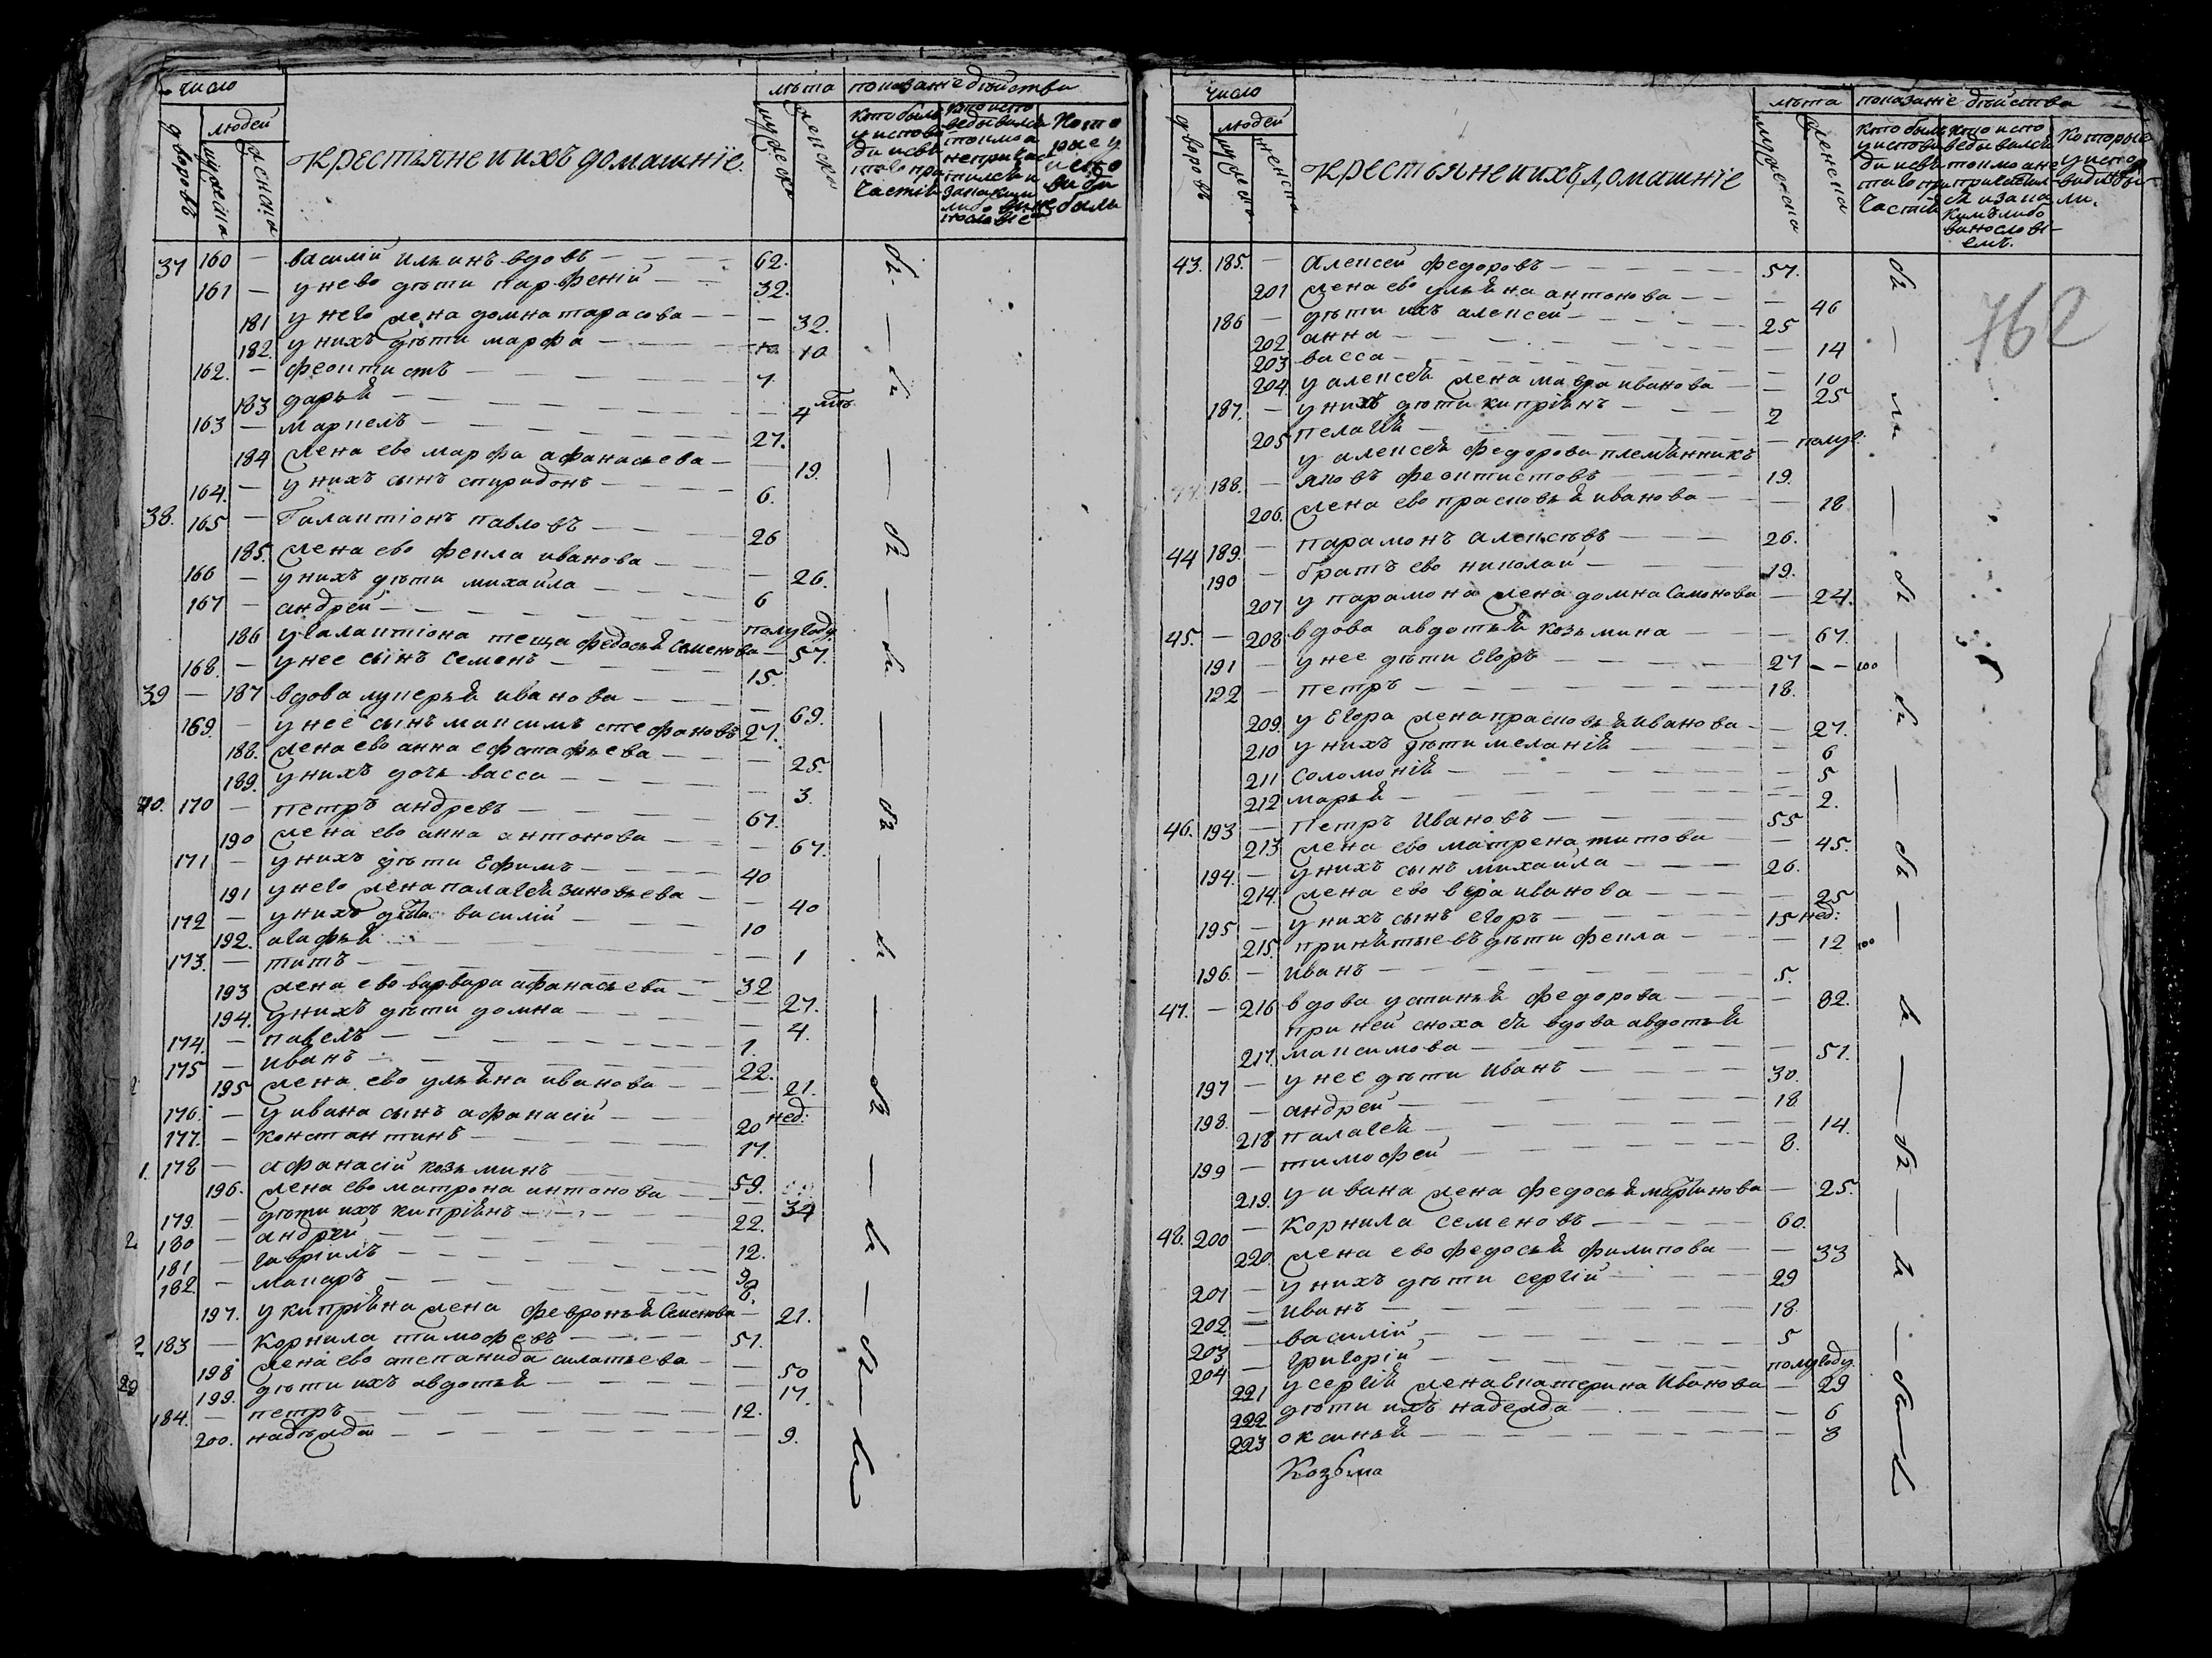 число
лѣта показанiе дѣйства
дворовъ
людей
мужеска
женска
крестьяне и ихъ домашнiе
мужеска
женска
кто былъ у исповѣди и свѣтаго причастiя
кто исповѣдывался токмо а не причастился и за какимъ либо винословiе
которые у исповѣди небыли
37 160 — василiй ильинъ вдовъ — 62.
161 — у нево дѣти парфенiй — 32.
181 у него жена домна тарасова — 32.
182. у нихъ дѣти марфа — 10
162. — феоктистъ — 7.
183 дарья — 4 мѣс.
163 — маркелъ — 27.
184 жена ево марфа афанасьева — 19.
164. — у нихъ сынъ спиридонъ — 6.
38. 165 — Галактiонъ павловъ — 26
185. жена ево фекла иванова — 26.
166 — у нихъ дѣти михайла — 6
167 — андрей — полугоду
186 у галактiона теща федосья семенова — 57.
168. — у нее сынъ семенъ — 15.
39 — 187 вдова лукерья иванова — 69.
169. — у нее сынъ максимъ стефановъ 27.
188. жена ево анна ефстафьева — 25.
189. у нихъ дочь васса — 3.
40. 170 — петръ андревъ — 67.
190 жена ево анна антонова — 67.
171 — у нихъ дѣти Ефимъ — 40
191 у него жена палагея зиновьева — 40
172 — у нихъ дѣти василiй — 10
192. агафья — 1
173. — титъ — 32
193 жена ево варвара афанасьева — 27.
194. у нихъ дѣти домна — 4.
174. — павелъ — 1.
175 — иванъ — 22.
195 жена ево ульяна иванова — 21.
176. — у ивана сынъ афанасiй — 20 нед:
177. — константинъ — 17.
1. 178 — афанасiй козьминъ — 59.
196. жена ево матрона антонова — 34
179. — дѣти ихъ кипрiянъ — 22.
2 180 — андрей — 12.
181 — гаврiилъ — 9
182. — макаръ — 6.
197. у кипрiяна жена февронья семенова — 21.
2 183 — Корнила тимофевъ — 51.
198 жена ево степанида силатьева — 50
199. дѣти ихъ авдотья — 17.
184. — петръ — 12.
200. надѣжда — 9.
число
лѣта показанiе дѣйства
дворовъ
людей
мужеска
женска
крестьяне и ихъ домашнiе
мужеска
женска
кто былъ у исповѣди и свѣтаго причастiя
кто исповѣдывался токмо а не причастился и за какимъ либо винословiемъ.
которые у исповѣди небыли.
762
43. 185. — Алексей федоровъ — 57.
201 жена ево ульяна антонова — 46
186 — дѣти ихъ алексей — 25
202 анна — 14
203 васса — 10
204 у алексея жена мавра иванова — 25
187. — у нихъ дѣти кипрiянъ — 2
205 пелагея — полуг.
у алексея федорова племянникъ
188. — яковъ феоктистовъ — 19.
206. жена ево прасковья иванова — 18
44 189. — парамонъ алексѣвъ — 26.
190 — братъ ево николай — 19.
207 у парамона жена домна самонова — 24.
45. — 208 вдова авдотья козьмина — 67.
191 — у нее дѣти Егоръ — 27
192 — петръ — 18.
209. у Егора жена прасковья иванова — 27.
210 у нихъ дѣти меланiя — 6
211 соломонiя — 5
212 марья — 2.
46. 193 — Петръ Ивановъ — 55
213 жена ево матрена титова — 45.
194. — у нихъ сынъ михайла — 26.
214. жена ево вера иванова — 25
195 — у нихъ сынъ егоръ — 15 нед:
215. принятые въ дѣти фекла — 12
196. — Иванъ — 5.
47. — 216 вдова устинья федорова — 82.
при ней сноха ея вдова авдотья
217. максимова — 51.
197 — у нее дѣти Иванъ — 30.
198. — андрей — 18
218 палагея — 14.
199 — тимофей — 8.
219. у ивана жена федосья мартинова — 25.
48. 200 — Корнила семеновъ — 60.
220. жена ево федосья филипова — 33
201 — у нихъ дѣти сергiй — 29
202 — Иванъ — 18
203 — василiй — 5
204 — григорiй — полугоду
221 у сергiя жена Екатерина Иванова — 29
222 дѣти ихъ надежда — 6
223 оксинья — 3
Козьма